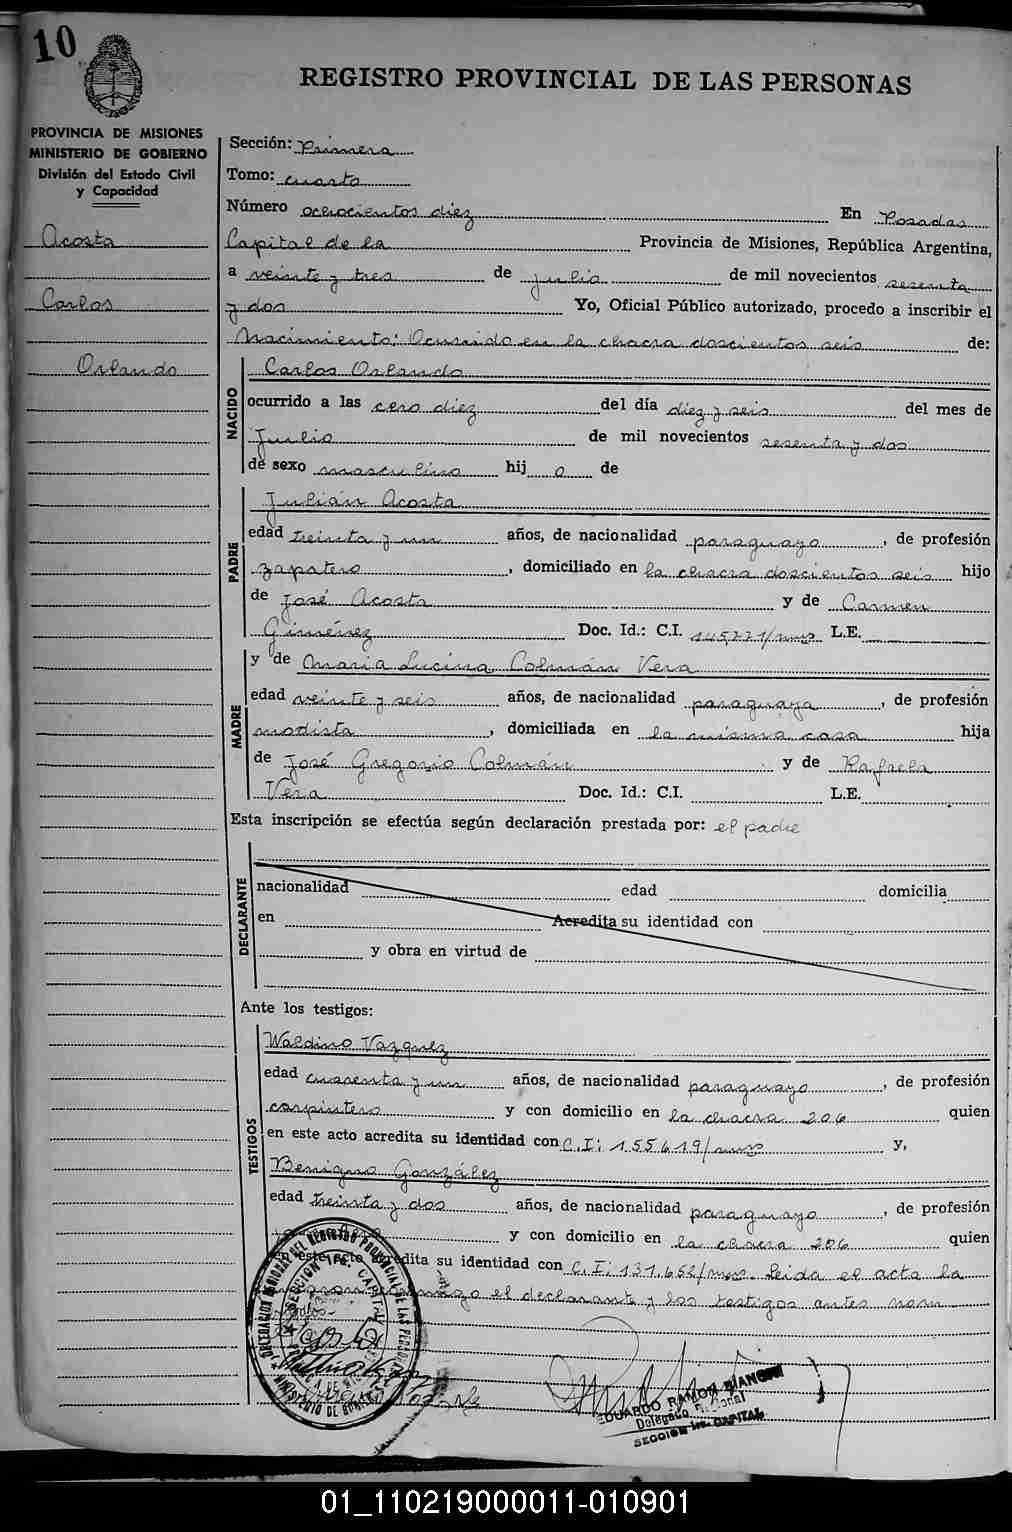 10
REGISTRO PROVINCIAL DE LAS PERSONAS
PROVINCIA DE MISIONES
MINISTERIO DE GOBIERNO
División del Estado Civil
y Capacidad
Acosta
Carlos
Orlando
Sección: Primera
Tomo: cuarto
Número ochocientos diez En Posadas
Capital de la Provincia de Misiones, República Argentina,
a veinte y tres de julio de mil novecientos sesenta
y dos Yo, Oficial Público autorizado, procedo a inscribir el
Nacimiento: Ocurrido en la chacra doscientos seis de:
NACIDO
Carlos Orlando
ocurrido a las cero diez del día diez y seis del mes de
Julio de mil novecientos sesenta y dos
de sexo masculino hij o de
PADRE
Julián Acosta
edad treinta y un años, de nacionalidad paraguayo, de profesión
zapatero, domiciliado en la chacra doscientos seis hijo
de José Acosta y de Carmen
Giménez Doc. Id.: C.I. 145,221/mns L.E.
MADRE
y de María Lucina Colmán Vera
edad veinte y seis años, de nacionalidad paraguaya, de profesión
modista, domiciliada en la misma casa hija
de José Gregorio Colmán y de Rafaela
Vera Doc. Id.: C.I. L.E.
Esta inscripción se efectúa según declaración prestada por: el padre
DECLARANTE
nacionalidad edad domicilia
en Acredita su identidad con
y obra en virtud de
Ante los testigos:
TESTIGOS
Waldino Vazquez
edad cuarenta y un años, de nacionalidad paraguayo, de profesión
carpintero y con domicilio en la chacra 206 quien
en este acto acredita su identidad con C.I: 155619/mns y,
Benigno González
edad treinta y dos años, de nacionalidad paraguayo, de profesión
y con domicilio en la chacra 206 quien
en este acto acredita su identidad con C.I: 131.652/mns. Leida el acta la
el declarante y los testigos antes nom
DELEGACION REGIONAL DEL REGISTRO PROVINCIAL DE LAS PERSONAS
SECCION 1ra. CAPITAL
MINISTERIO DE GOBIERNO
EDUARDO RAMON BIANCHI
Delegado Regional
SECCION 1ra. CAPITAL
01_110219000011-010901